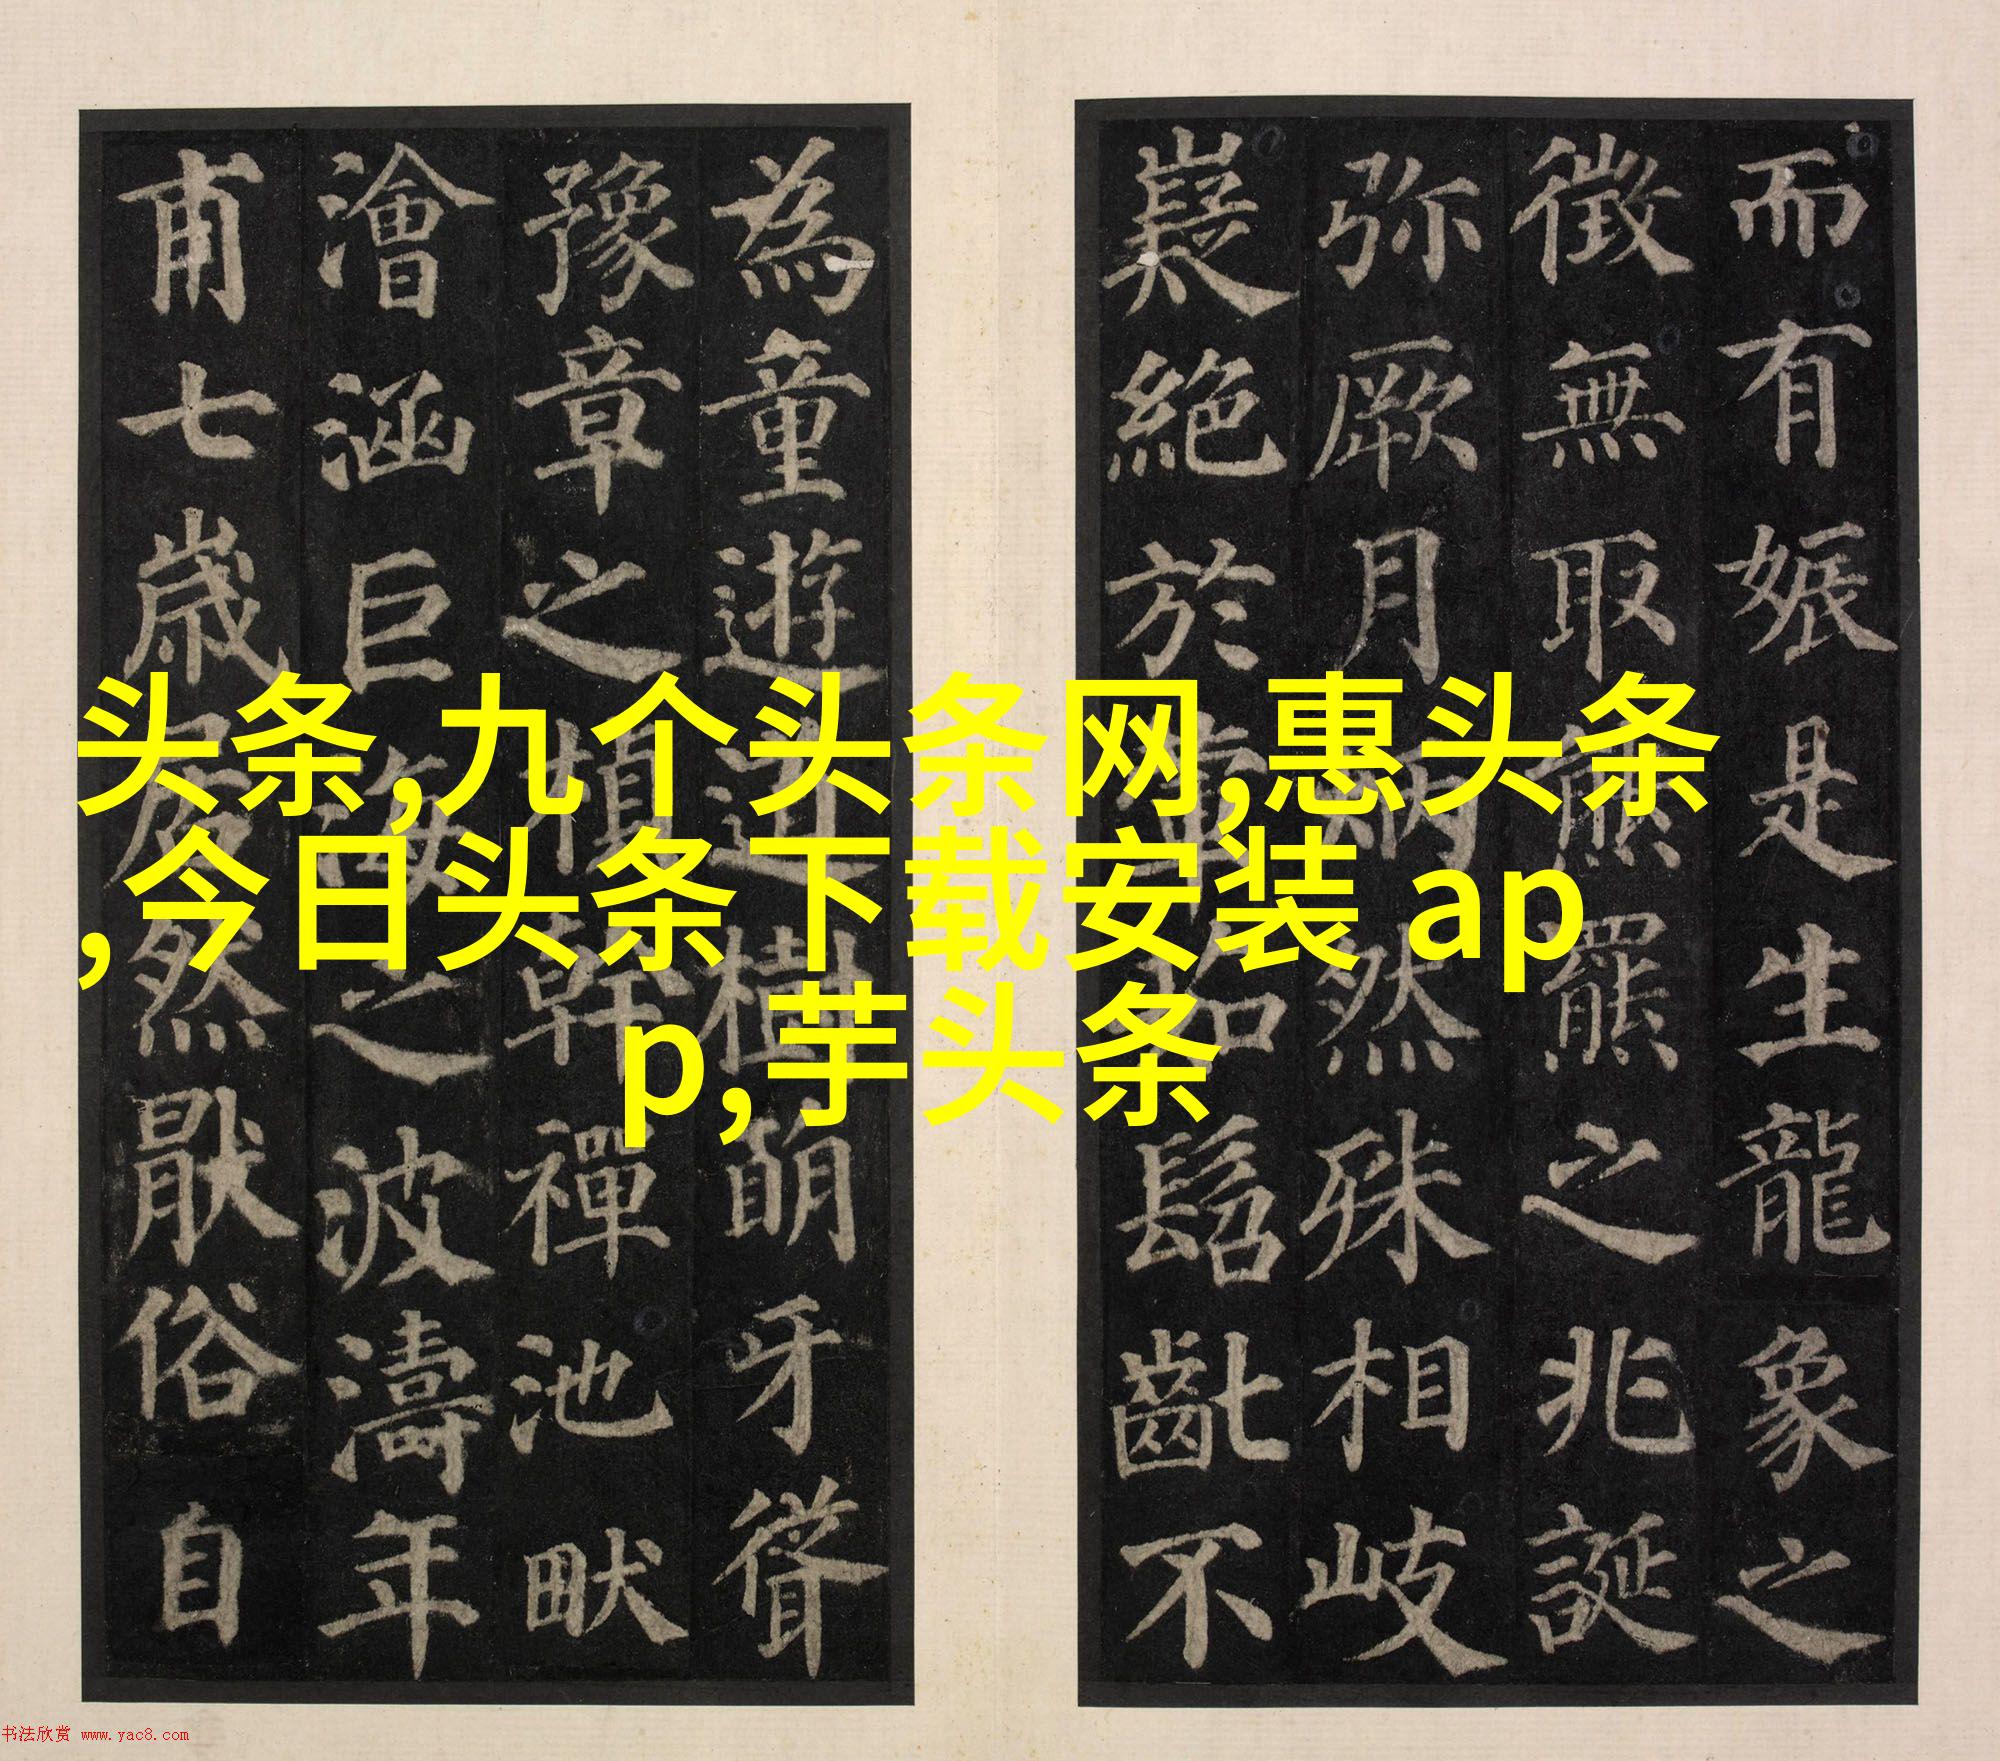 头条,九个头条网,惠头条
,今日头条下载安装 ap
p,芋头条
而有娠是生龍象之
徵無取熊羆之兆誕
弥厥月然殊相岐
嶷絶於葷茹髫齔不
為童遊道樹萌牙聳
豫章之楨幹禪池畎
澮涵巨海之波濤年
甫七歲居然猒俗自
书法欣赏 www.yac8.com